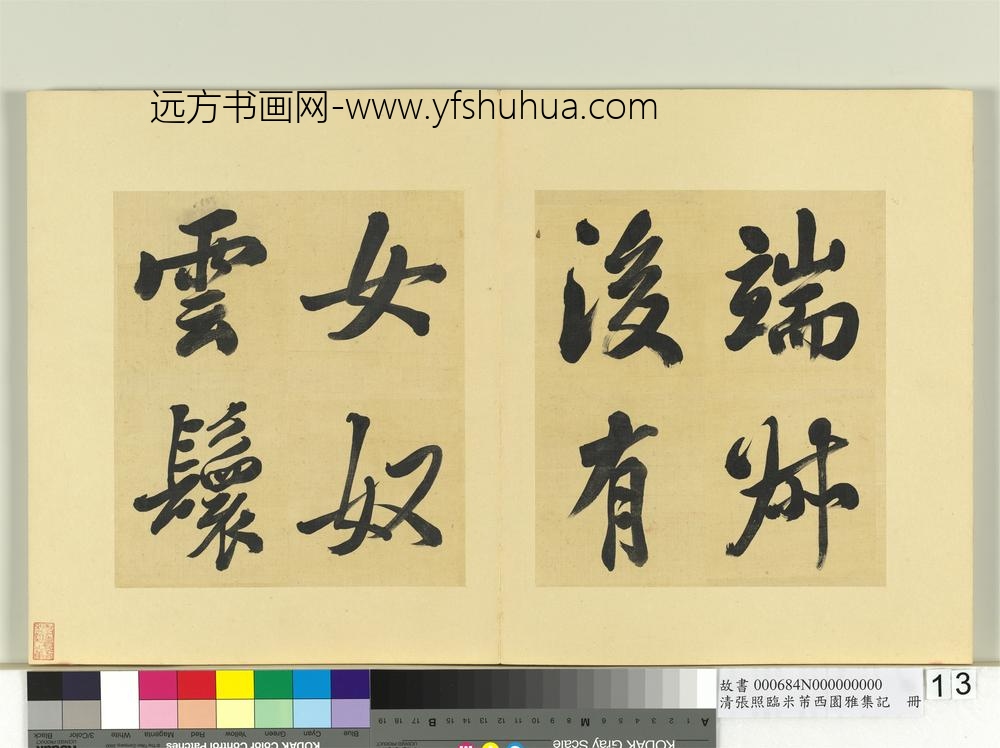 远方书画网-www.yfshuhua.com
端叔
後有
女奴
雲鬟
故書 000684N000000000
清張照臨米芾西園雅集記 冊
13
Blue Cyan Green Yellow Red Magenta White 3/Color Black
KODAK Color Control Patches
A 1 2 3 4 5 6 M 8 9 10 11 12 13 14 15 B 17 18 19
KODAK Gray Scale